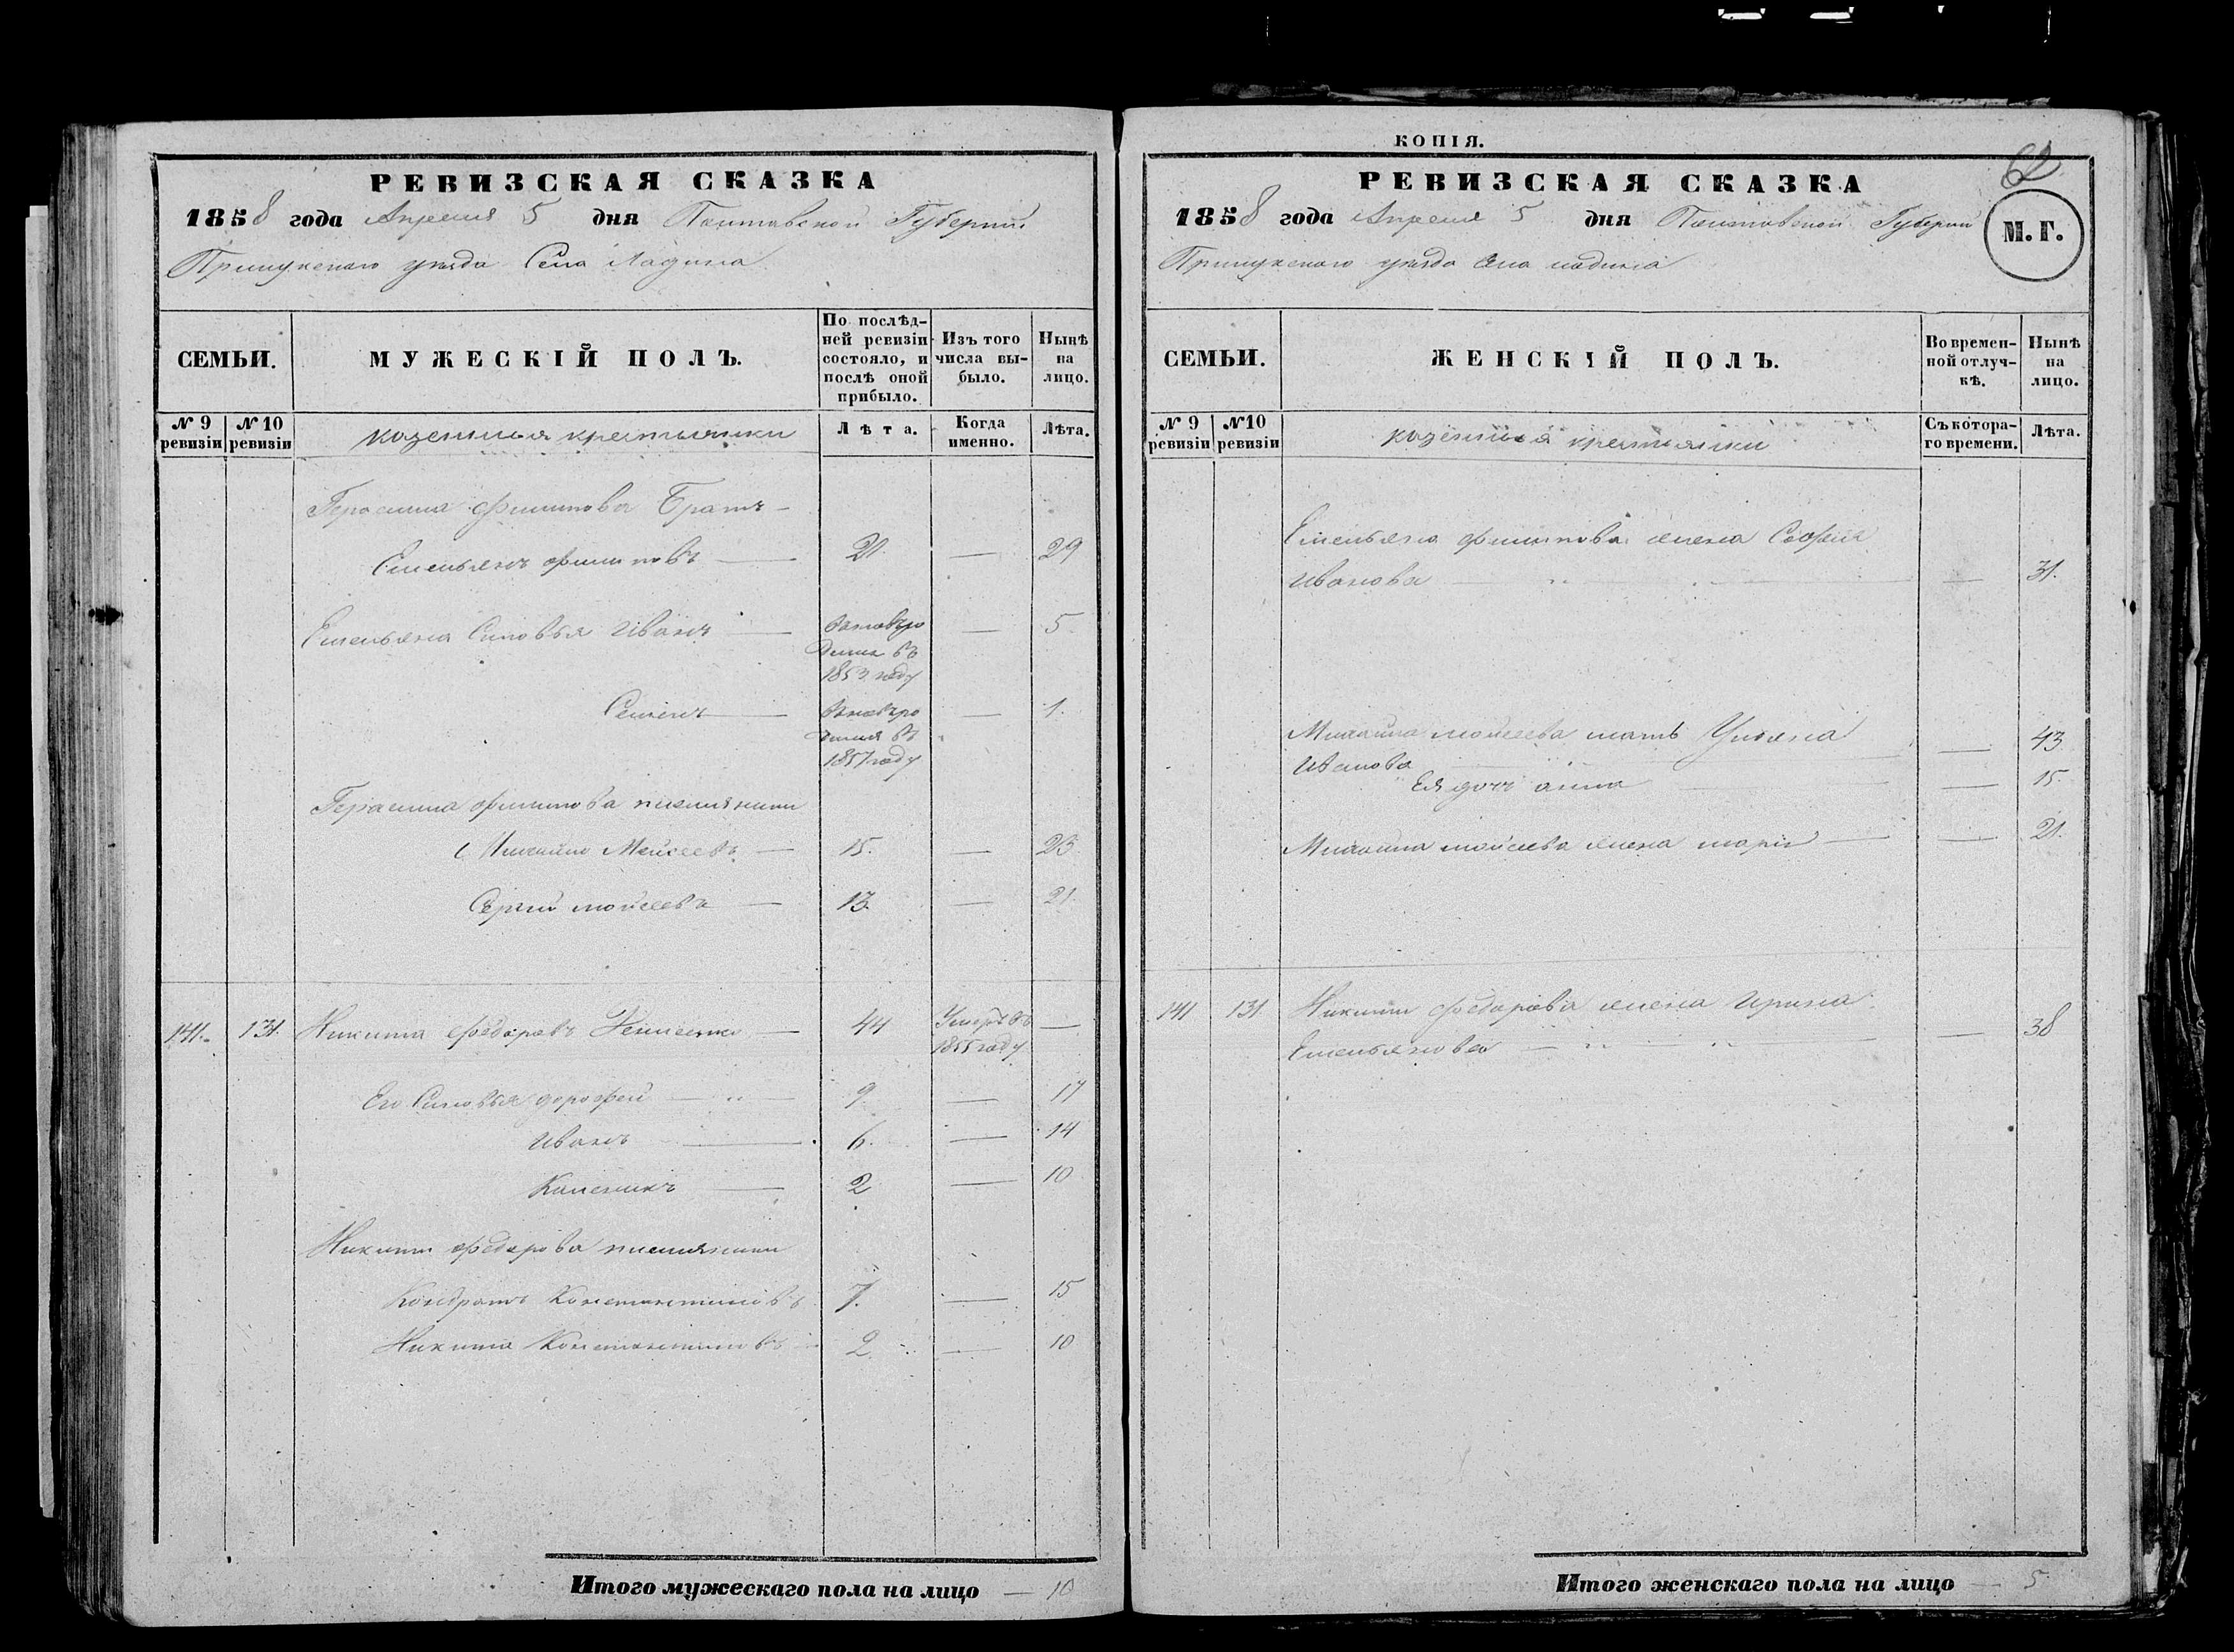 РЕВИЗСКАЯ СКАЗКА
1858 года Апреля 5 дня Полтавской Губернии
Прилукского уезда Села Ладина
СЕМЬИ.
МУЖЕСКІЙ ПОЛЪ.
По послѣд-
ней ревизіи
состояло, и
послѣ оной
прибыло.
Изъ того
числа вы-
было.
Нынѣ
на
лицо.
№ 9
ревизіи
№ 10
ревизіи
казенныя крестьянки
Лѣта.
Когда
именно.
Лѣта.
Герасима Филипова Братъ —
Емельянъ Филиповъ — 21. — 29
Емельяна Синовья Иванъ — Вновьро — 5
дился въ
1853 году
Семенъ — Вновьро — 1.
дился въ
1857 году
Герасима Филипова племянники
Михайло Мойсеевъ — 15. — 23
Сергій Мойсеевъ — 13. — 21.
141. 131. Никита Федоровъ — 44 Умеръ въ —
1855 году
Его Синовья Дорофей — 9 — 17
Иванъ — 6. — 14
Каленикъ — 2 — 10
Никити Федорова племянники
Кондратъ Константиновъ 7. — 15
Никита Константиновъ — 2 — 10
Итого мужескаго пола на лицо — 10
КОПІЯ.
62
РЕВИЗСКАЯ СКАЗКА
1858 года Апреля 5 дня Полтавской Губернии
М. Г.
Прилукского уезда Села Ладина
СЕМЬИ.
ЖЕНСКІЙ ПОЛЪ.
Во времен-
ной отлуч-
кѣ.
Нынѣ
на
лицо.
№ 9
ревизіи
№10
ревизіи
казенныя крестьянки
Съ котора-
го времени.
Лѣта.
Емельяна Филипова жена Софія
Иванова — — 31.
Михайла Мойсеева мать Уляна
Иванова — — 43
Ея дочь Анна — — 15.
Михайла Мойсеева жена Марія — — 21.
141 131 Никити Федорова жена Ирина
Емельянова — — 38
Итого женскаго пола на лицо — 5